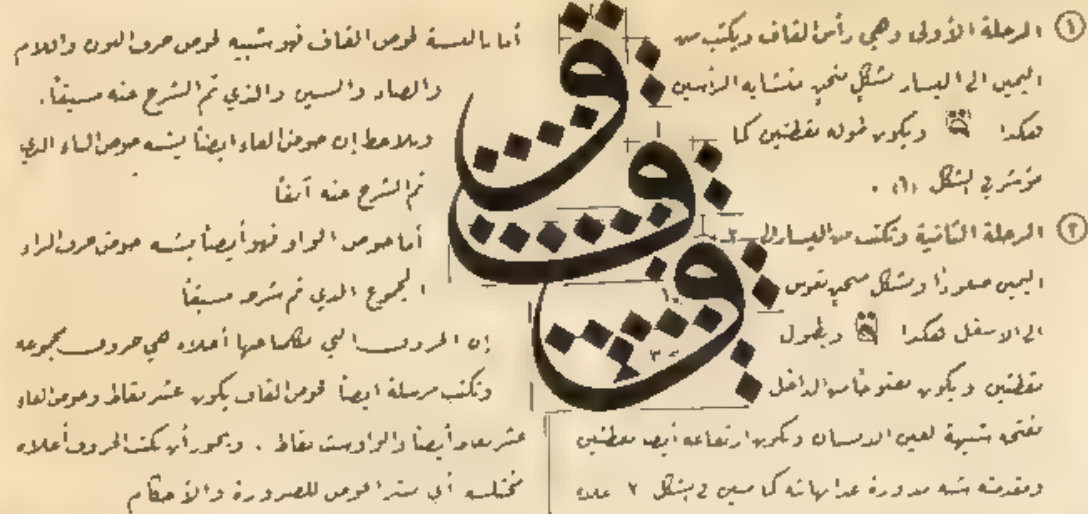 ① المرحلة الأولى وهي رأس القاف ويكتب من
اليمين الى اليسار بشكل منحنٍ متشابه الرأسين
هكذا ويكون طوله نقطتين كما
مؤشر في الشكل (١) .
② المرحلة الثانية وتكتب من اليسار الى
اليمين صعوداً وبشكل منحنٍ تقوس
الى الاسفل هكذا وبطول
نقطتين ويكون مفتوحاً من الداخل
فتحة شبيهة لعين الانسان ويكون ارتفاعه أيضاً نقطتين
ومقدمته شبه مدورة عدا نهايته كما مبين في الشكل ٢ علاه
أما بالنسبة لحوض القاف فهو شبيه لحوض حرف النون واللام
والصاد والسين والذي تم الشرح عنه مسبقاً .
ويلاحظ إن حوض الفاء ايضاً يشبه حوض الباء الذي
تم الشرح عنه آنفاً
أما حوض الواو فهو أيضاً يشبه حوض حرف الراء
المجموع الذي تم شرحه مسبقاً
إن الحروف التي تكلمنا عنها أعلاه هي حروف مجموعه
وتكتب مرسلة ايضاً فحوض القاف يكون عشر نقاط وحوض الفاء
عشر نقاط أيضاً والواو ست نقاط . ويجوز أن تكتب الحروف أعلاه
مختلسه أي مبتر الحوض للضرورة والأحكام
ق
ق
ق
١
٢
٣